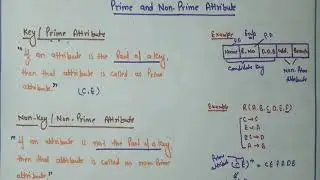 Prime and Non-Prime Attribute
Key / Prime Attribute
" If an attribute is the Part of a key,
then that attribute is called as Prime
attribute."
(C, E)
Non-Key / Non-Prime Attribute
" If an attribute is not the Part of a key,
then that attribute is called as non-Prime
attribute."
Example
Name R.No D.O.B Add. Branch
Candidate Key
Non-Prime
Attribute
Example
R (A, B, C, D, E, F)
C → F
E → A
EC → D
A → B
Prime
attribute